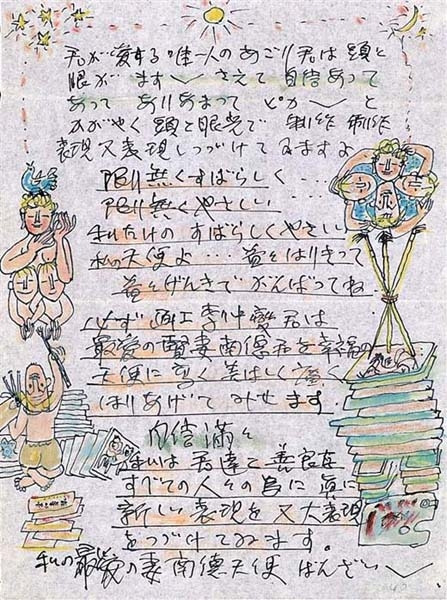 君が愛する唯一人のあごり君は頭と
眼がます〱 さえて 自信あって
あって ありあまって ピカ〱 と
かがやく 頭と眼光で 制作 制作
表現又表現しつづけてゐますよ
限り無くすばらしく…
限り無くやさしい…
私だけの すばらしくやさしい
私の天使よ…益々はりきって
益々げんきでがんばってね
必ず 画工李仲燮君は
最愛の賢妻南德君を幸福の
天使に高く美しく
ほりあげて みせます
自信満々
私は 君達と善良な
すべての人々の為に 真に
新しい表現を又大表現
をつづけてゐます。
私の最愛の妻南德天使 ばんざい〱